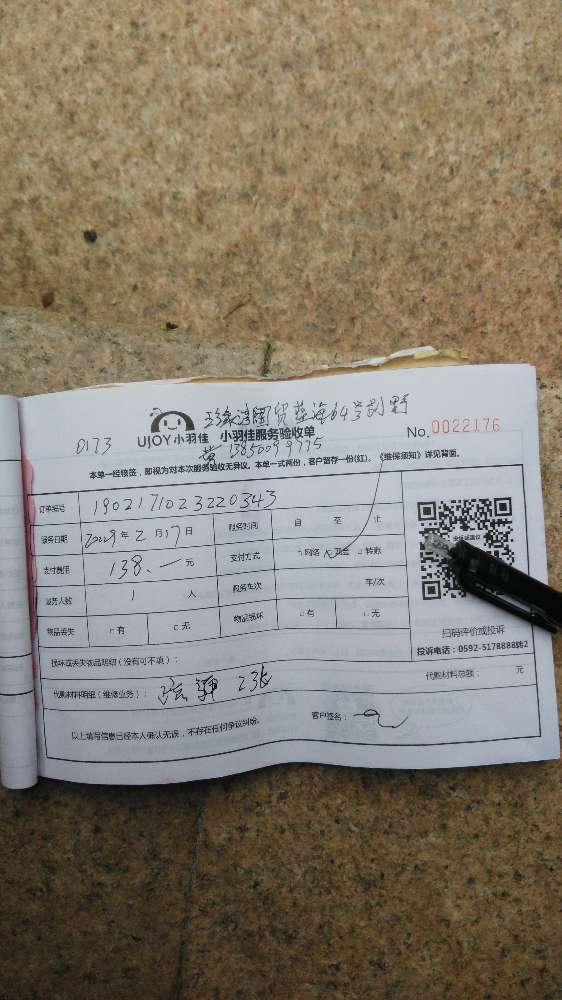 0173
UJOY小羽佳 小羽佳服务验收单 No.0022176
黄 13850099775
本单一经接签，即视为对本次服务验收无异议。本单一式两份，客户留存一份(红)。《维保须知》详见背面。
订单编号 1902171023220343
服务日期 年 2 月 17 日 服务时间 自 至 止
支付费用 138.一 元 支付方式 □网络 现金 □转账
服务人数 1 人 服务车次 车/次
物品丢失 □有 □无 物品损坏 □有 □无
扫码评价或投诉
投诉电话：0592-5178888转2
损坏或丢失物品明细（没有可不填）：
代购材料明细（维修业务）： 2张 代购材料总额： 元
以上填写信息已经本人确认无误，不存在任何争议纠纷。 客户签名：